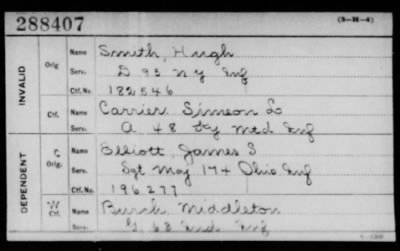 288407
(3-M-4)
INVALID
Orig Name Smith, Hugh
Serv. D 93 N Y Inf
Ctf. No. 182546
Ctf. Name Carrier Simeon L
Serv. A 48 Ky Mtd Inf
DEPENDENT
C Orig. Name Elliott, James S
Serv. Sgt Maj 174 Ohio Inf
Ctf. No. 196277
W Ctf. Name Burch Middleton
Serv. G 68 Ind Inf